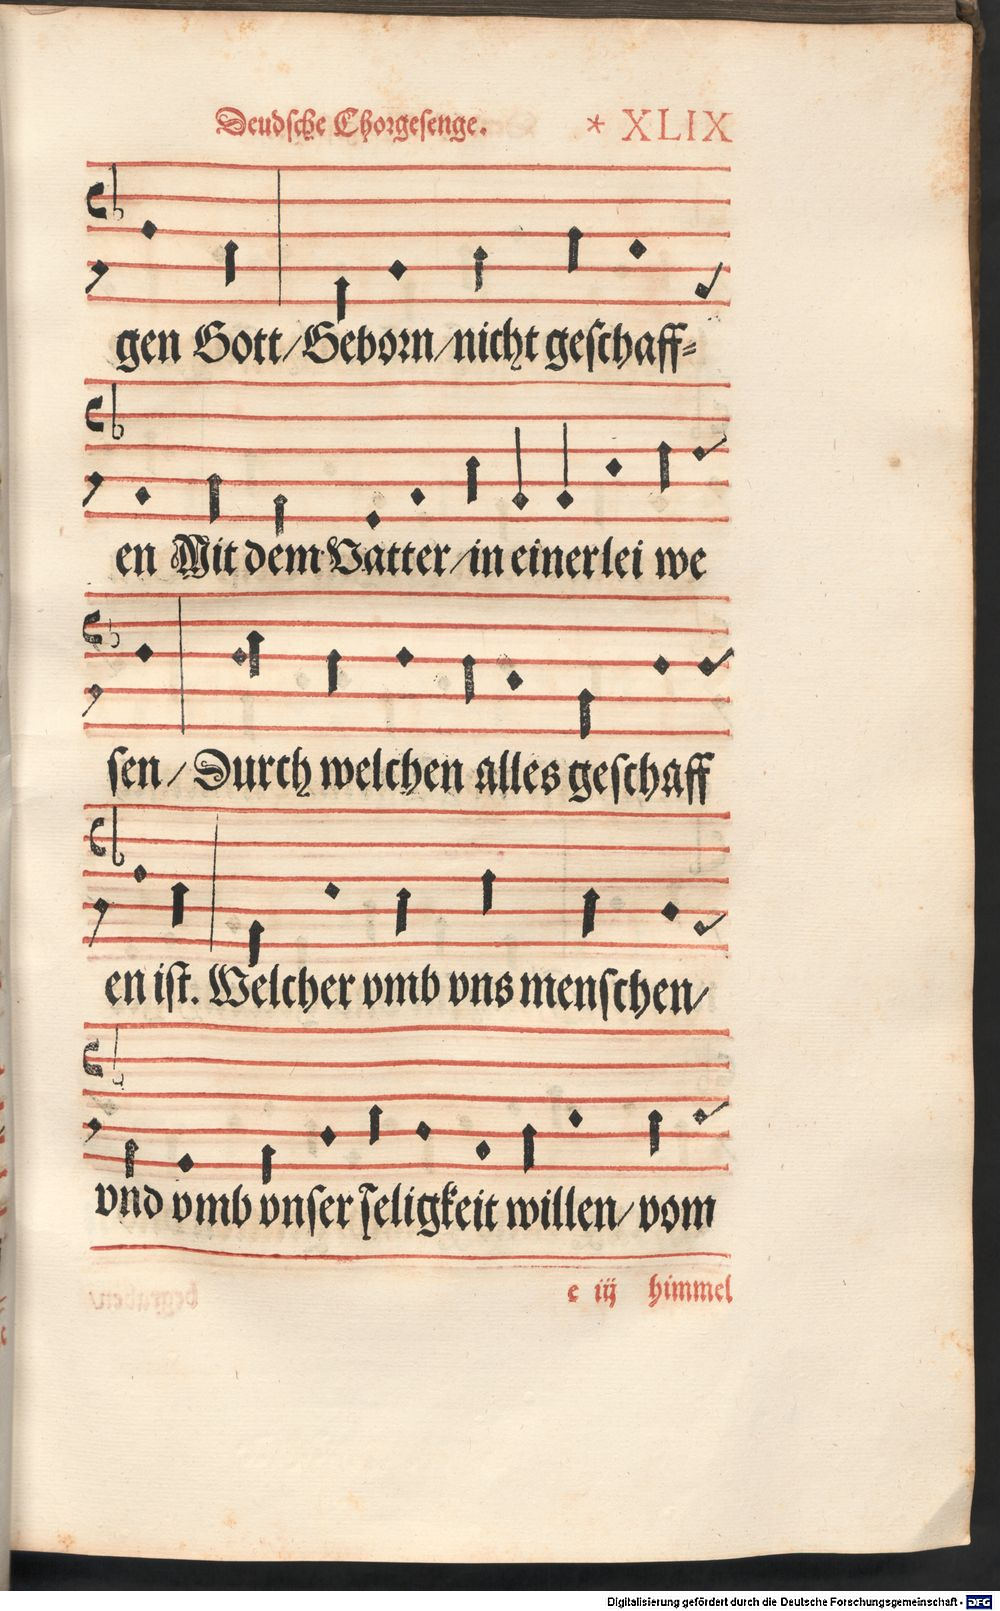 Deudsche Chorgesenge. * XLIX
gen Gott/Geborn/nicht geschaff⸗
en Mit dem Vatter/in einerlei we
sen/Durch welchen alles geschaff
en ist. Welcher vmb vns menschen/
vnd vmb vnser seligkeit willen/vom
e iij himmel
Digitalisierung gefördert durch die Deutsche Forschungsgemeinschaft - DFG